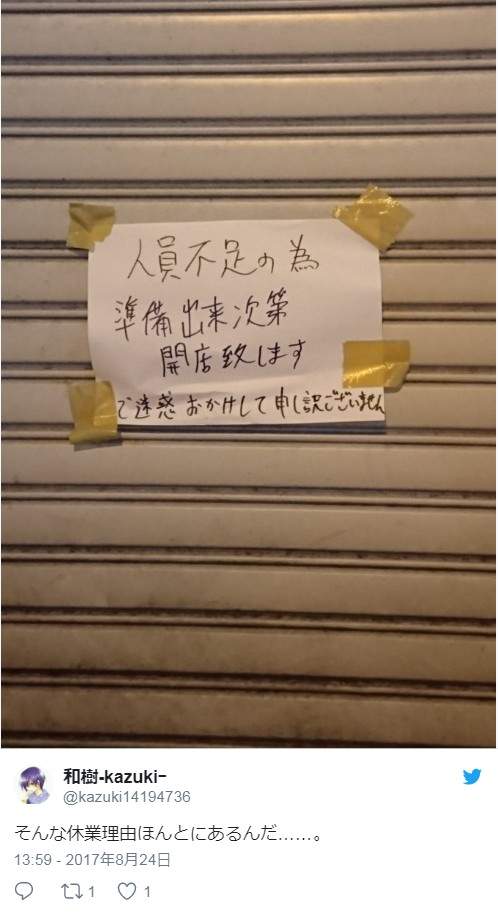 人員不足の為
準備出来次第
開店致します
ご迷惑おかけして申し訳ございません
和樹-kazukiｰ
@kazuki14194736
そんな休業理由ほんとにあるんだ……。
13:59 - 2017年8月24日
1 1